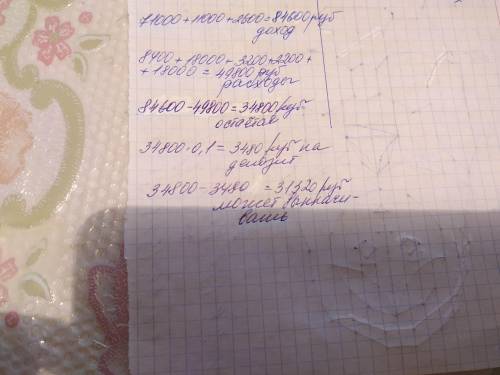 71000+11000+2600=84600 руб
доход
8400+18000+3200+2200+
+18000=49800 руб
расходы
84600-49800=34800 руб
остаток
34800·0,1=3480 руб на
депозит
34800-3480=31320 руб
может выплачи-
вать